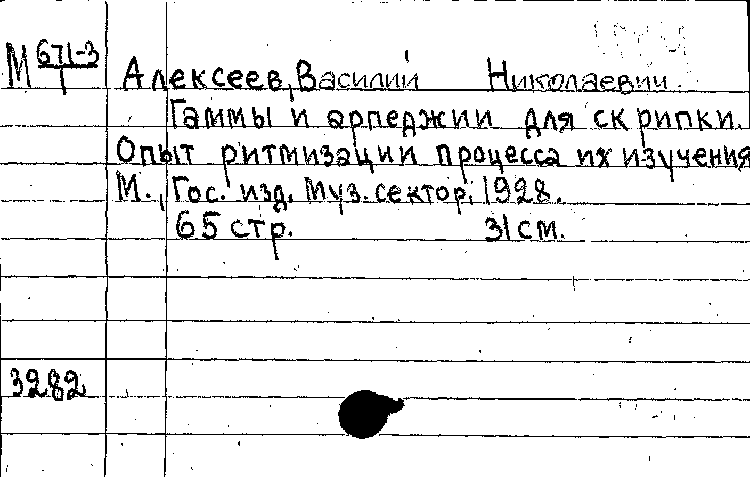 М 671-3/1
Алексеев, Василий Николаевич.
Гаммы и арпеджии для скрипки.
Опыт ритмизации процесса их изучения
М., Гос. изд. Муз. сектор, 1928.
65 стр. 31 см.
3282